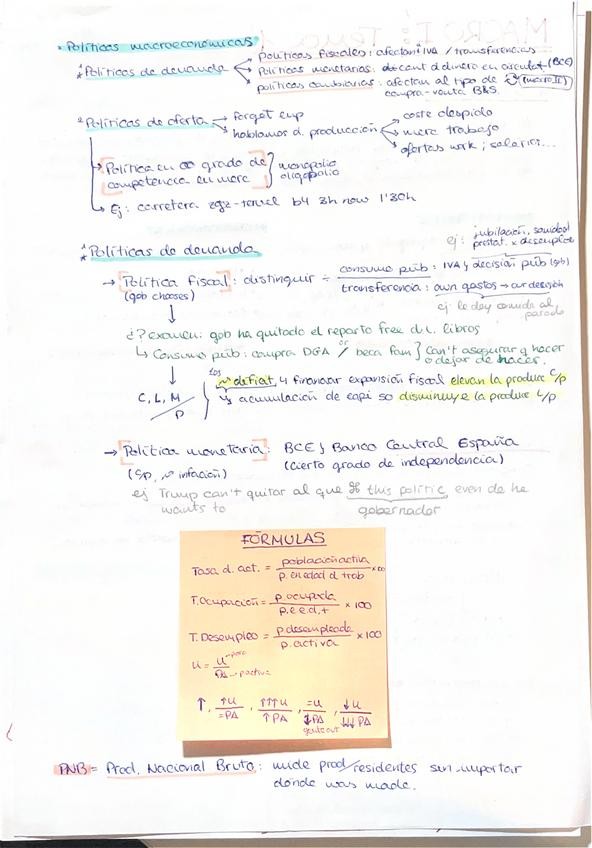 * Políticas macroeconómicas
* Políticas de demanda
políticas fiscales: afectan IVA / transferencias
Políticas monetarias: d cant d dinero en circulat (BCE)
políticas cambiarias: afectan al tipo de (macro II)
compra-venta B&S.
Políticas de oferta → forget eup
hablamos d. producción
coste despido
merc trabajo
ofertas work; salarios...
→ Política en ∞ grado de
competencia en merc
monopolio
oligopolio
→ Ej: carretera zgz-teruel b4 3h now 1'30h
* Políticas de demanda
ej: jubilación, sanidad
prestat. x desemplea
→ Política fiscal: distinguir ÷
(gob chooses)
consumo púb: IVA y decisión púb (gob)
transferencia: own gastos → our decision
ej le doy comida al
parado
¿? examen: gob ha quitado el reparto free d.l. libros
↳ Consumo púb: compra DGA or / beca fam } can't asegurar q hacer
o dejar de hacer.
C, L, M
P
los deficit, 4 financiar expansión fiscal elevan la produce C/p
acumulación de capi so disminuye la produce L/p
→ Política monetaria: BCE } Banco Central España
(C/p, inflación) (cierto grado de independencia)
ej Trump can't quitar al que this politic, even de he
wants to gobernador
FÓRMULAS
Tasa d. act. = población activa / p. en edad d trab x100
T. Ocupación = p. ocupada / p.e.e.d.t x 100
T. Desempleo = p. desempleada / p. activa x 100
u = U / PA → p activa
↑, ↑U / =PA, ↑↑↑U / ↑PA, =U / ↓PA, ↓U / ↓↓↓PA
PNB = Prod. Nacional Bruto: mide prod/residentes sin importar
dónde was made.